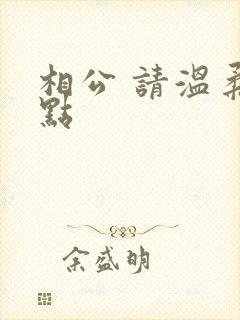 相公 請溫柔
點
余盛明